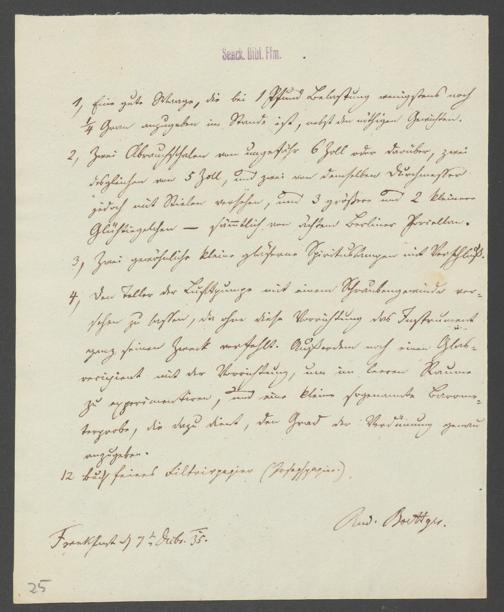 Senck. Bibl. Ffm.
1, Eine gute Waage, die bei 1 Pfund Belastung wenigstens noch
1/4 Gran anzugeben im Stande ist, nebst den nöthigen Gewichten.
2, Zwei Abrauchschalen von ungefähr 6 Zoll oder darüber, zwei
desgleichen von 5 Zoll, und zwei von demselben Durchmesser
jedoch mit Stielen versehen, und 3 größere und 2 kleinere
Glühtiegelchen — sämmtlich von ächtem Berliner Porcellan.
3, Zwei gewöhnliche kleine gläserne Spirituslampen mit Verschluß.
4, Den Teller der Luftpumpe mit einem Schraubengewinde ver-
sehen zu lassen, da ohne diese Vorrichtung das Instrument
ganz seinen Zweck verfehlt. Außerdem noch einen Glas-
recipient mit der Vorrichtung, um im leeren Raume
zu experimentiren, und eine kleine sogenannte Barome-
terprobe, die dazu dient, den Grad der Verdünnung genau
anzugeben.
12 Buch feines Filtrirpapier (Postpapier).
Rud. Boettger.
Frankfurt d 7t Decbr. 35.
25